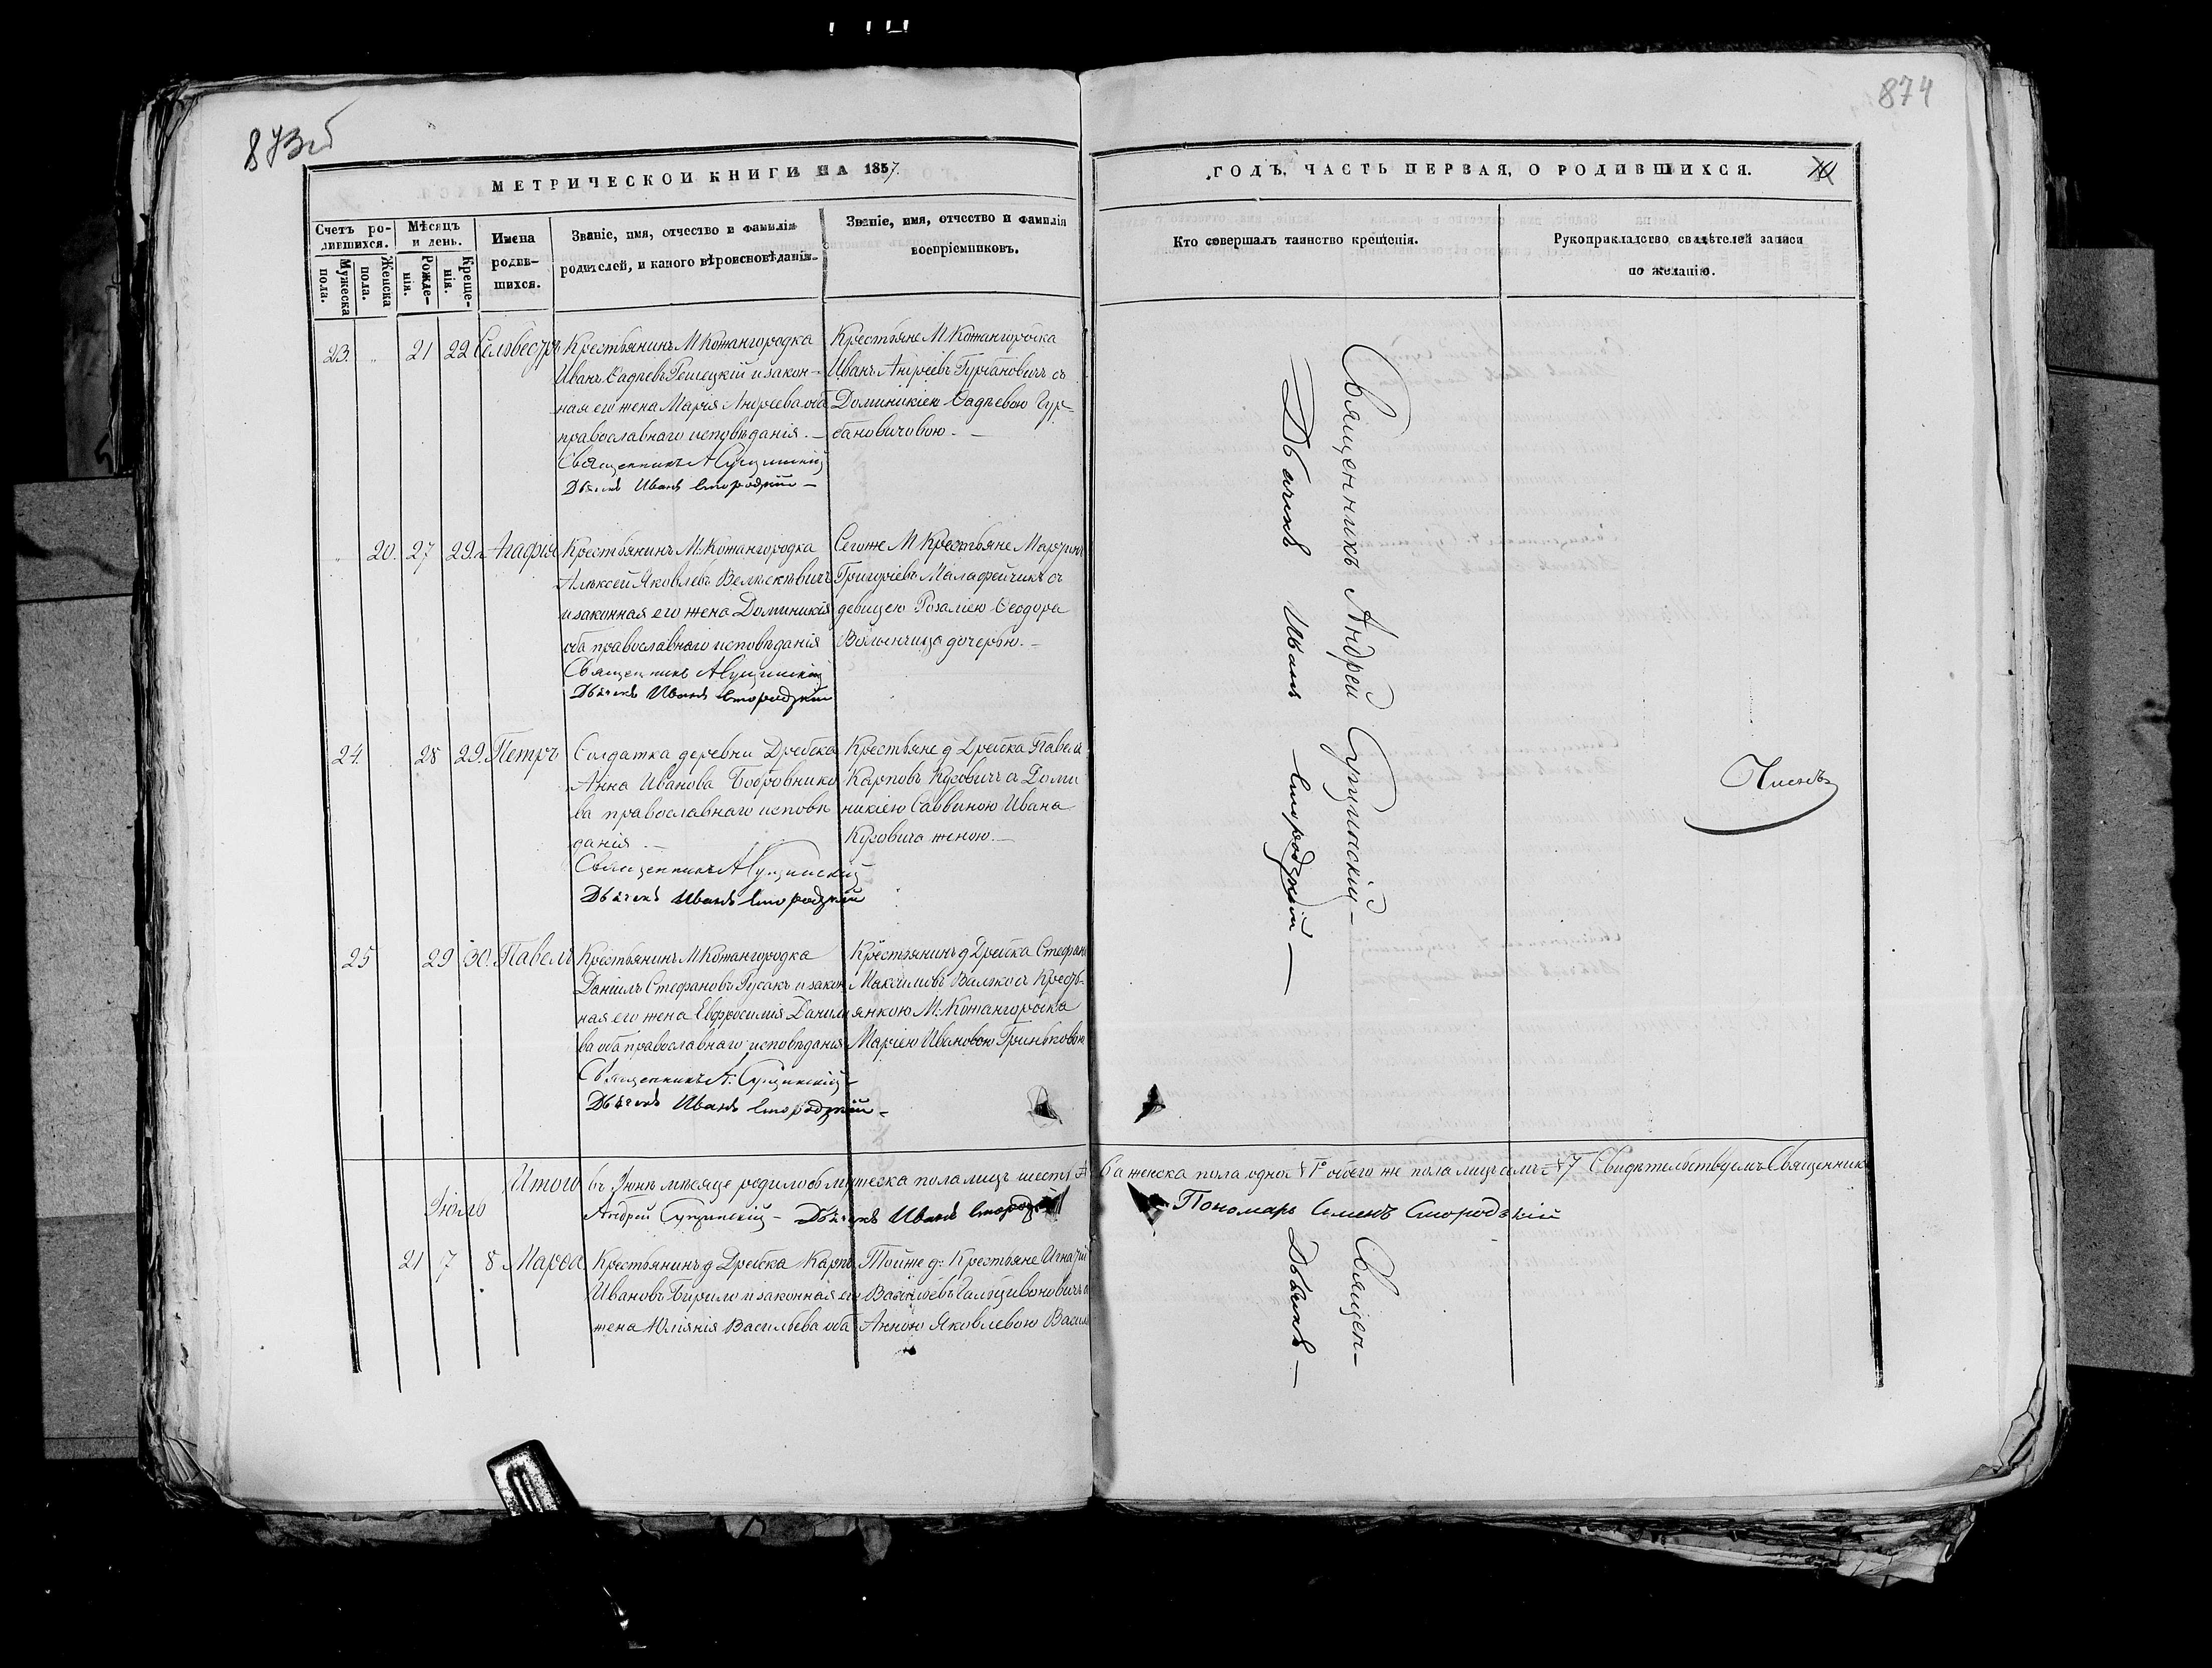 873об
874
МЕТРИЧЕСКОЙ КНИГИ НА 1857.
ГОДЪ, ЧАСТЬ ПЕРВАЯ, О РОДИВШИХСЯ.
10
Счетъ ро-
дившихся.
Мужеска
пола.
Женска
пола.
Мѣсяцъ
и день.
Рожде-
нія.
Креще-
нія.
Имена
родив-
шихся.
Званіе, имя, отчество и фамилія
родителей, и какого вѣроисповѣданія.
Званіе, имя, отчество и фамилія
воспріемниковъ.
Кто совершалъ таинство крещенія.
Рукоприкладство свидѣтелей записи
по желанію.
23. 21 22 Селвестръ
Крестьянинъ М Кожангородка
Иванъ Фадѣевъ Решецкій и закон-
ная его жена Марія Андреева оба
православнаго исповѣданія. —
Священникъ А Сущинскій
Дьячекъ Иванъ Смородскій —
Крестьяне М. Кожангородка
Иванъ Андреевъ Гурбановичъ съ
Доминикіею Фадѣевою Гур-
бановичовою. —
20. 27 29. Агафія
Крестьянинъ М: Кожангородка
Алексѣй Яковлевъ
и законная его жена Доминикія
оба православнаго исповѣданія
Священникъ А Сущинскій
Дьячекъ Иванъ Смородскій
Сегоже М Крестьяне Мартинъ
Григоріевъ Малафейчикъ съ
девицею Розаліею Феодора
дочерью. —
24. 28 29. Петръ
Солдатка деревни Дребска
Анна Иванова Бобровнико
ва православнаго исповѣ
данія. —
Священникъ А Сущинскій
Дьячекъ Иванъ Смородскій
Крестьяне д Дребска Павелъ
Карповъ Кузовичъ съ Доми
никіею Саввиною Ивана
Кузовича женою. —
25 29 30. Павелъ
Крестьянинъ М Кожангородка
Даніилъ Стефановъ Русакъ и закон
ная его жена Евфросинія Данило
ва оба православнаго исповѣданія
Священникъ А: Сущинскій —
Дьячекъ Иванъ Смородскій —
Крестьянинъ д Дребска Стефанъ
Максимовъ съ Кресть-
янкою М: Кожангородка
Маріею Ивановою Гриньковою
Священникъ Андрей Сущинскій —
Дьячекъ Иванъ Смородскій —
Итого въ Іюнѣ мѣсяце родилось мужеска пола лицъ шесть № 6 а женска пола одно № 1о обоего же пола лицъ семь № 7 Свидѣтельствуемъ Священникъ
Андрей Сущинскій — Дьячекъ Иванъ Смородскій Пономарь Семенъ Смородскій
Іюль
21 7 8 Марѳа
Крестьянинъ д Дребска Карпъ
Ивановъ Бирило и законная его
жена Юліянія Васильева оба
Тойже д: Крестьяне Игнатій
съ
Анною Яковлевою
Священ—
Дьячекъ —